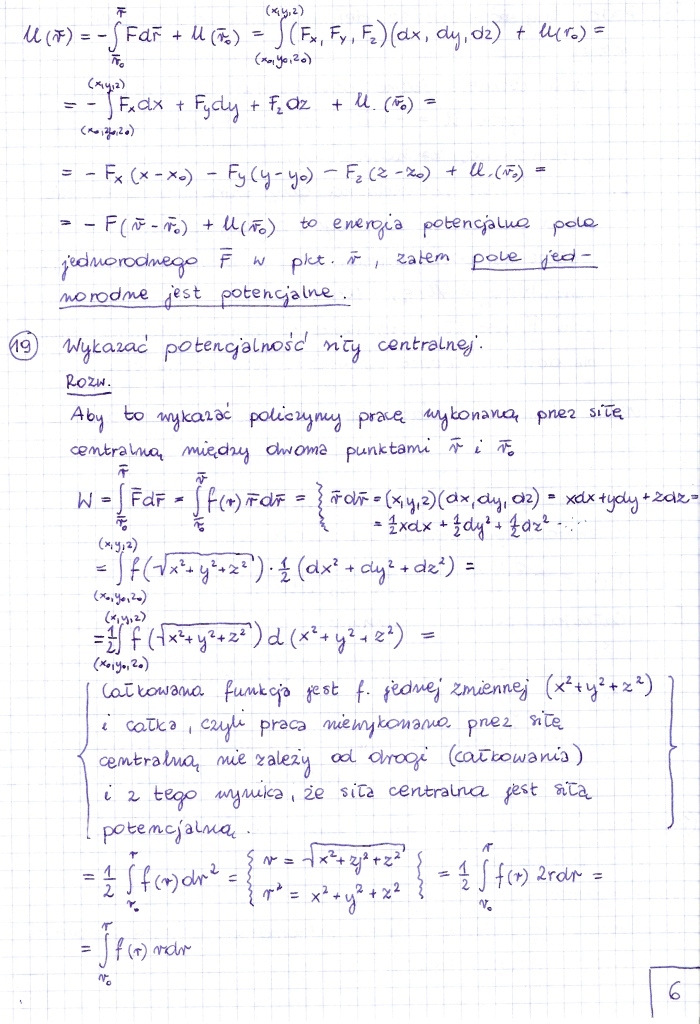 U(r̄) = - ∫_{r̄₀}^{r̄} F̄dr̄ + U(r̄₀) = ∫_{(x₀,y₀,z₀)}^{(x,y,z)} (Fx, Fy, Fz)(dx, dy, dz) + U(r₀) =
= - ∫_{(x₀,y₀,z₀)}^{(x,y,z)} Fxdx + Fydy + Fzdz + U.(r̄₀) =
= - Fx(x-x₀) - Fy(y-y₀) - Fz(z-z₀) + U.(r̄₀) =
= - F(r̄ - r̄₀) + U(r̄₀) to energia potencjalna pola
jednorodnego F̄ w pkt. r̄, zatem pole jed-
norodne jest potencjalne.
19 Wykazać potencjalność siły centralnej.
Rozw.
Aby to wykazać policzymy pracę wykonaną przez siłę
centralną między dwoma punktami r̄ i r̄₀
W = ∫_{r̄₀}^{r̄} F̄dr̄ = ∫_{r̄₀}^{r̄} f(r) r̄dr̄ = { r̄dr̄ = (x,y,z)(dx,dy,dz) = xdx+ydy+zdz=
= ½xdx + ½dy² + ½dz² ...
= ∫_{(x₀,y₀,z₀)}^{(x,y,z)} f(√x²+y²+z²) · ½ (dx² + dy² + dz²) =
= ½ ∫_{(x₀,y₀,z₀)}^{(x,y,z)} f(√x²+y²+z²) d(x²+y²+z²) =
{ Całkowana funkcja jest f. jednej zmiennej (x²+y²+z²)
i całka, czyli praca niewykonana przez siłę
centralną nie zależy od drogi (całkowania)
i z tego wynika, że siła centralna jest siłą
potencjalną. }
= ½ ∫_{r₀}^{r} f(r)dr² = { r = √x²+y²+z² r² = x²+y²+z² } = ½ ∫_{r₀}^{r} f(r) 2rdr =
= ∫_{r₀}^{r} f(r) rdr
6